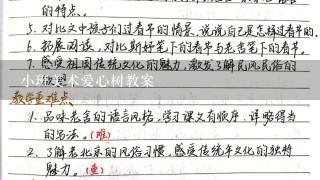 的特点。
5. 对比文中孩子们过春节的情景,说说自己是怎样过春节的.
6. 拓展阅读,对比斯妤笔下的春节与老舍笔下的春节。
7. 感受祖国传统文化的魅力,激发了解民风民俗的
小班美术爱心树教案
教学重难点
1. 品味老舍的语言风格,学习课文有顺序、详略得当
的写法。(难)
2. 了解老北京的风俗习惯,感受传统年文化的独特
魅力。(重)